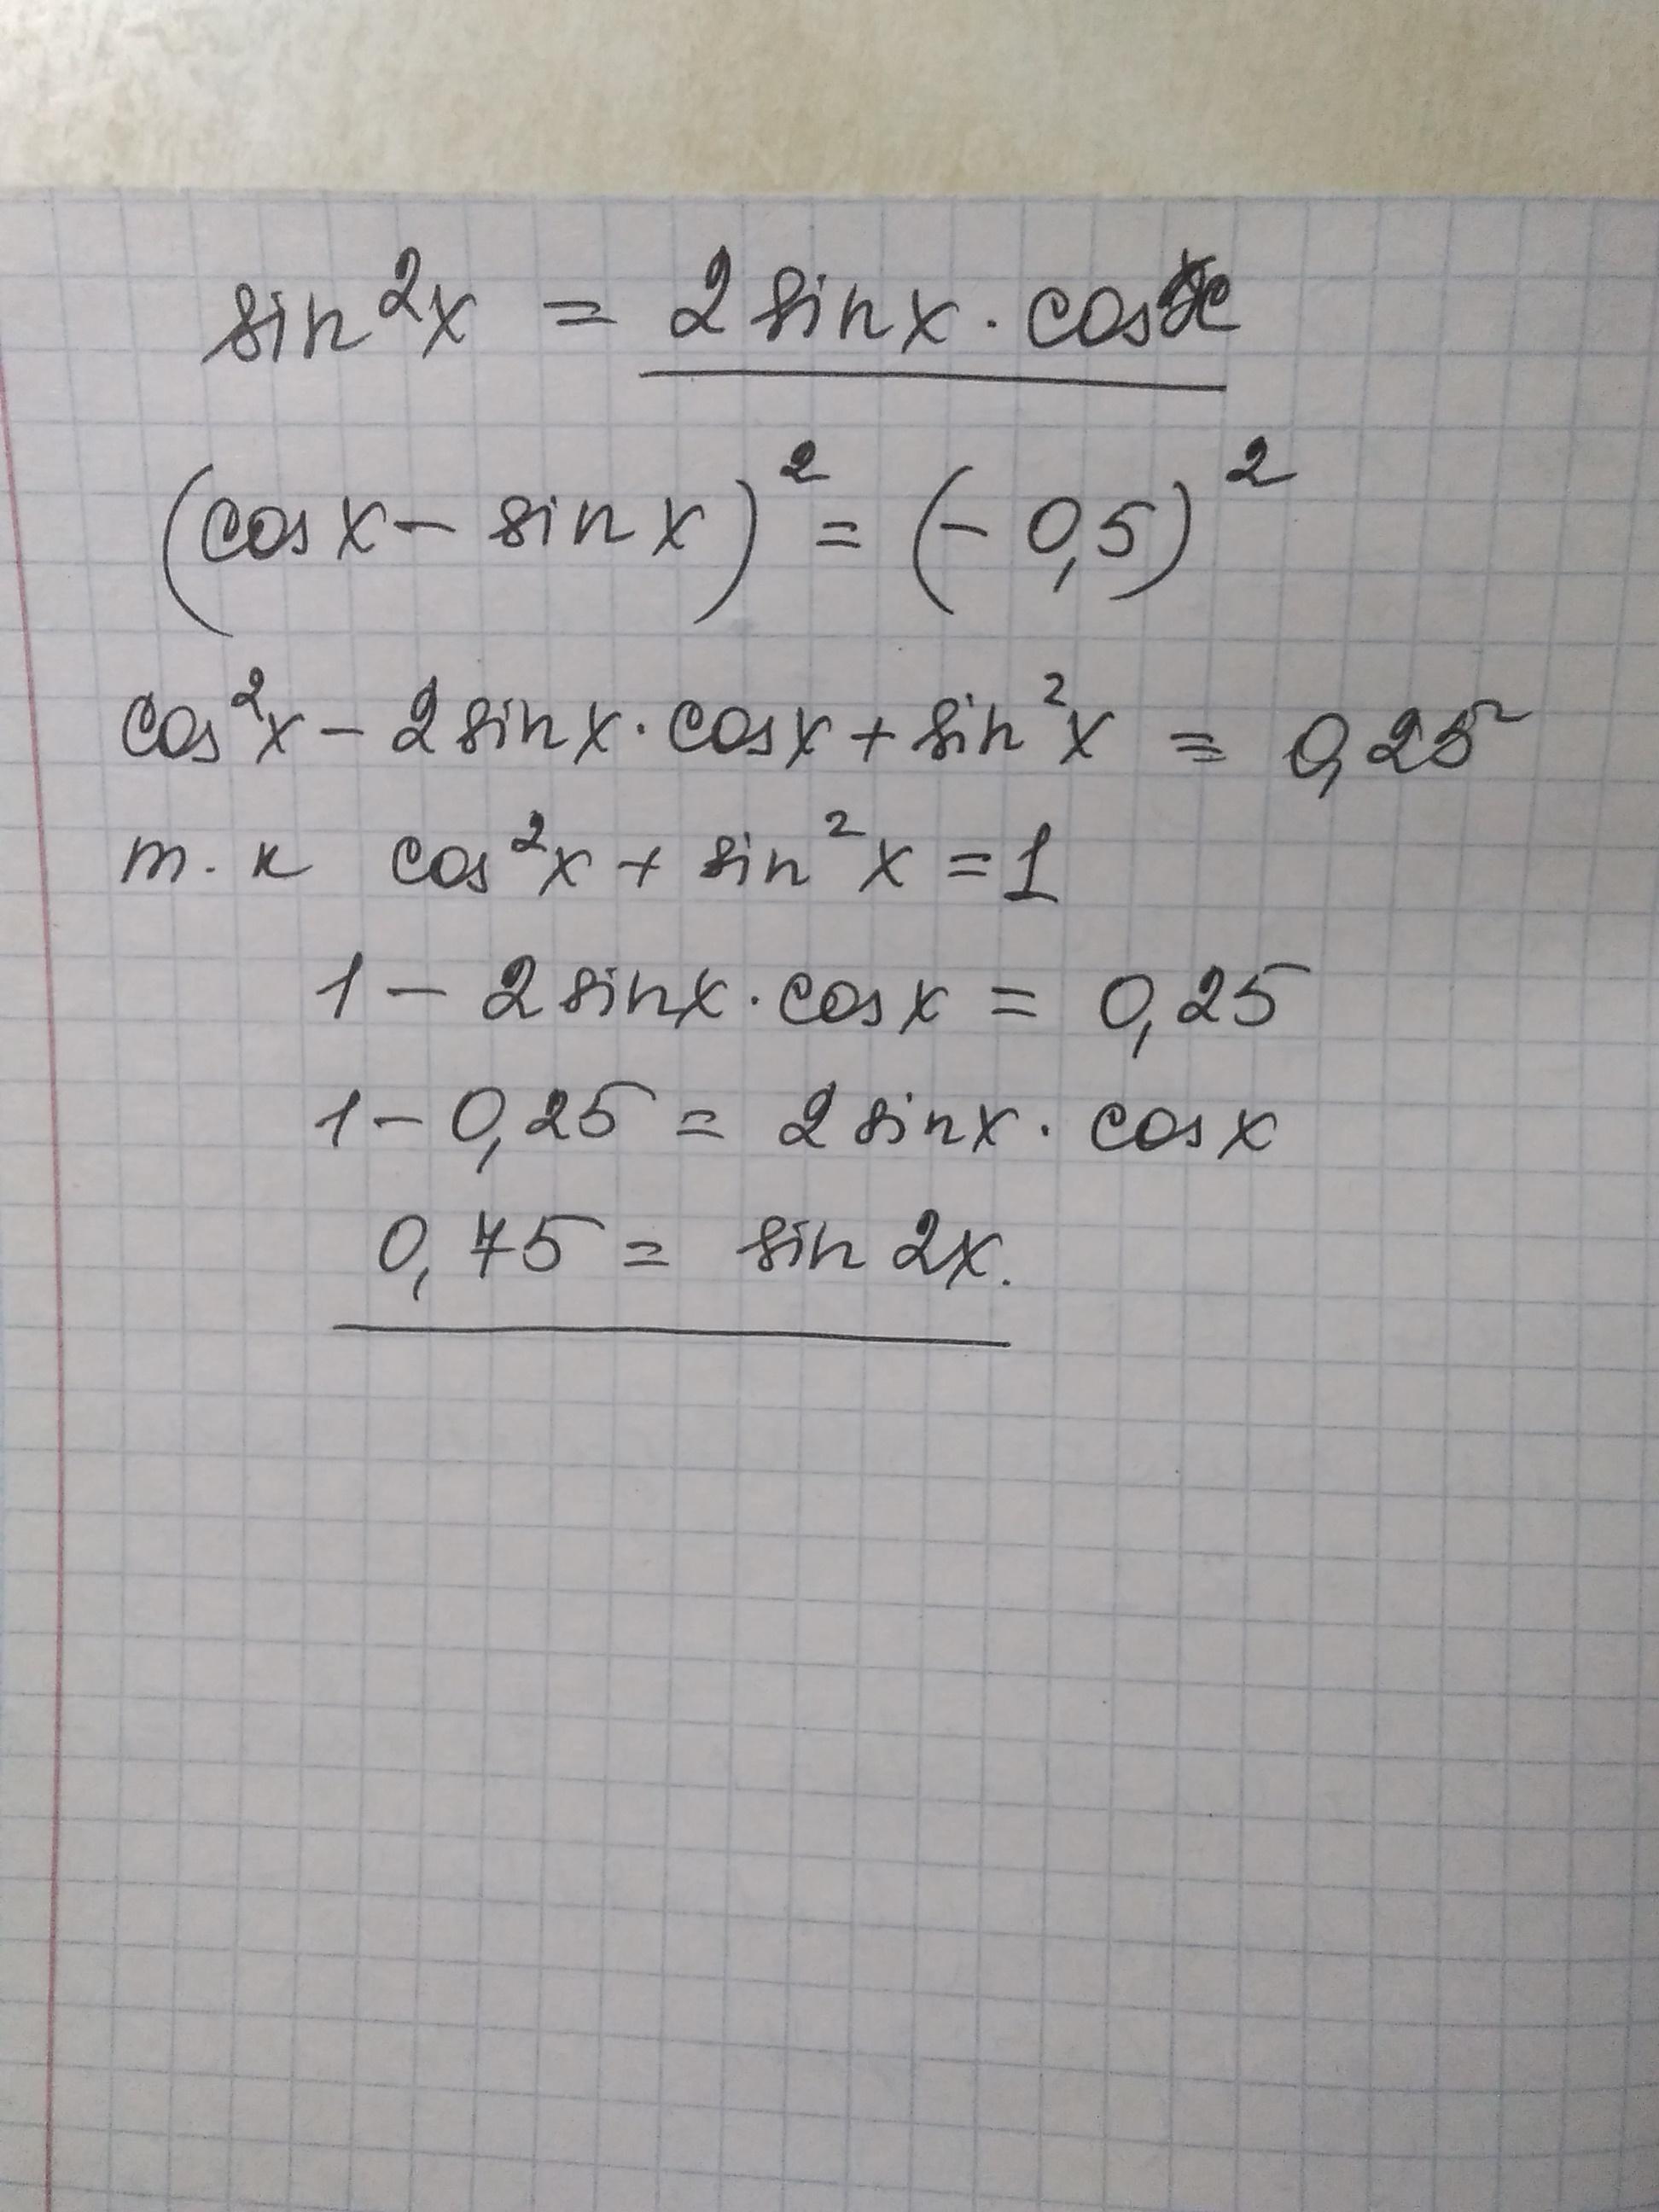 sin²x = 2 sin x · cos x
(cos x – sin x)² = (– 0,5)²
cos²x – 2 sin x · cos x + sin²x = 0,25
т. к cos²x + sin²x = 1
1 – 2 sin x · cos x = 0,25
1 – 0,25 = 2 sin x · cos x
0,75 = sin 2x.